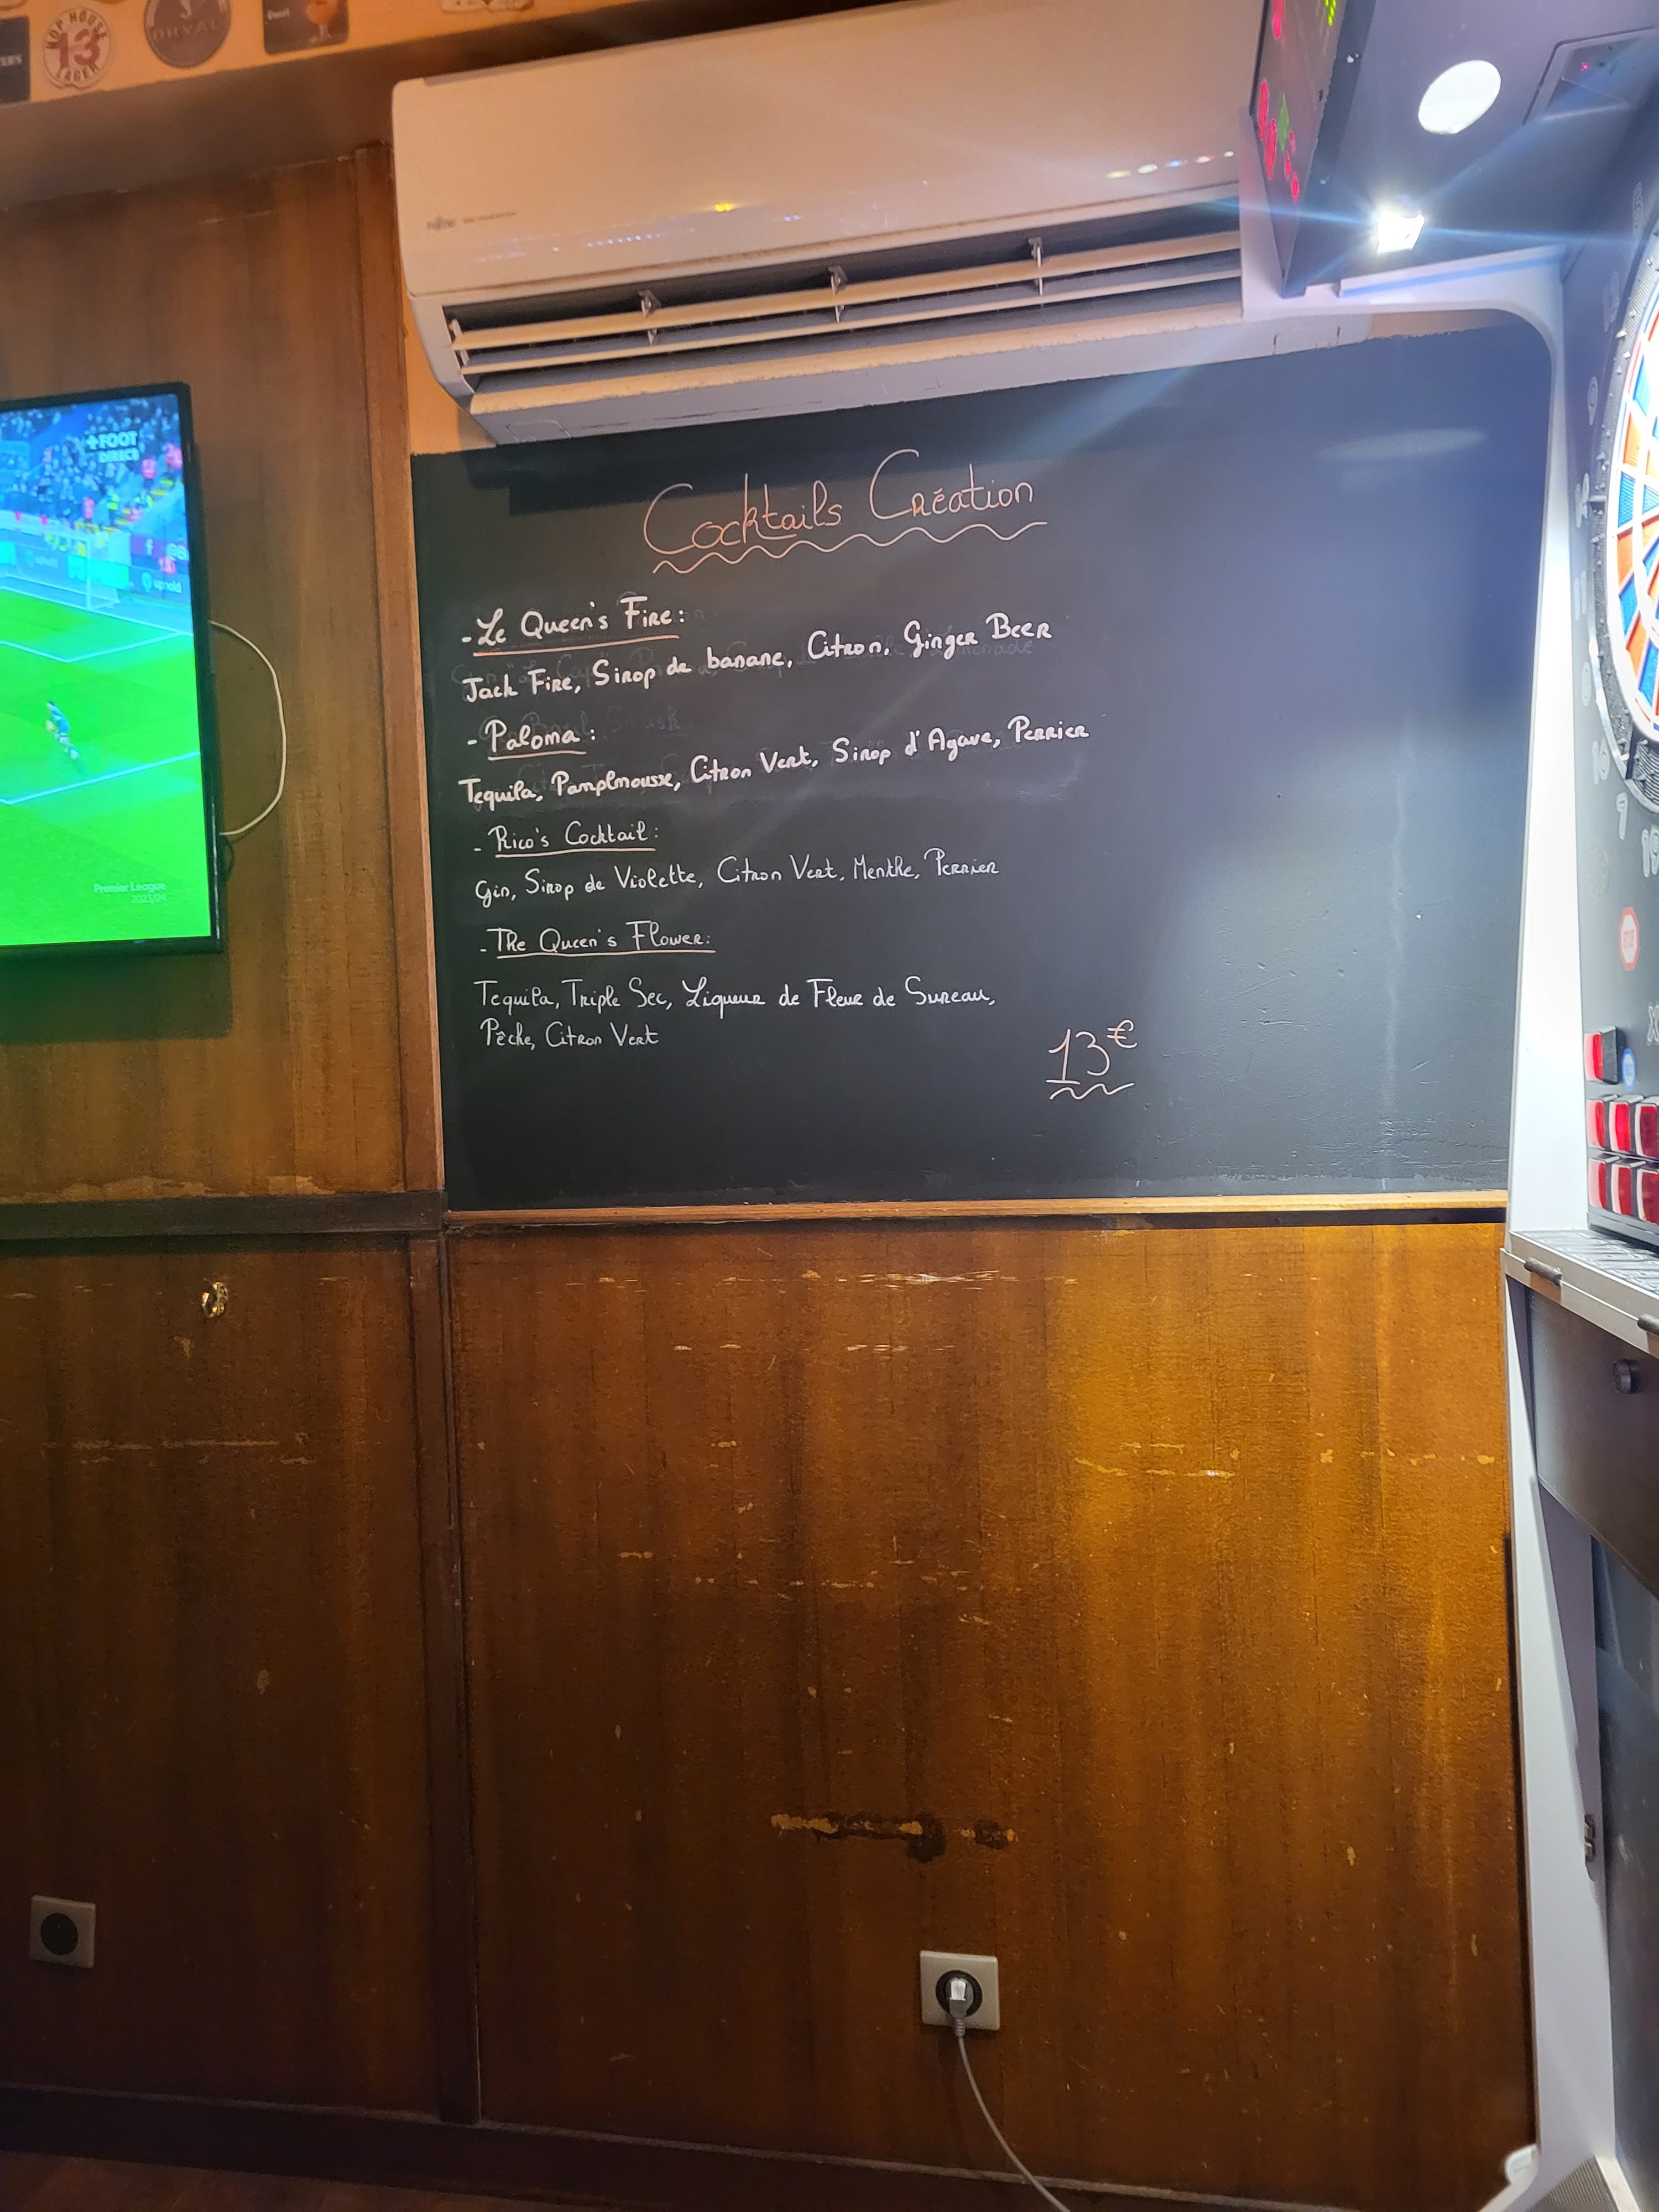 HOP HOUSE
13
LAGER
ORVAL
FUJITSU
+FOOT
DIRECT
uphold
Premier League
2023/24
Cocktails Création
- Le Queen's Fire:
Jack Fire, Sirop de banane, Citron, Ginger Beer
- Paloma:
Tequila, Pamplmousse, Citron Vert, Sirop d'Agave, Perrier
- Rico's Cocktail:
Gin, Sirop de Violette, Citron Vert, Menthe, Perrier
- The Queen's Flower:
Tequila, Triple Sec, Liqueur de Fleur de Sureau,
Pêche, Citron Vert
13€
9
14
11
8
16
7
19
STOP